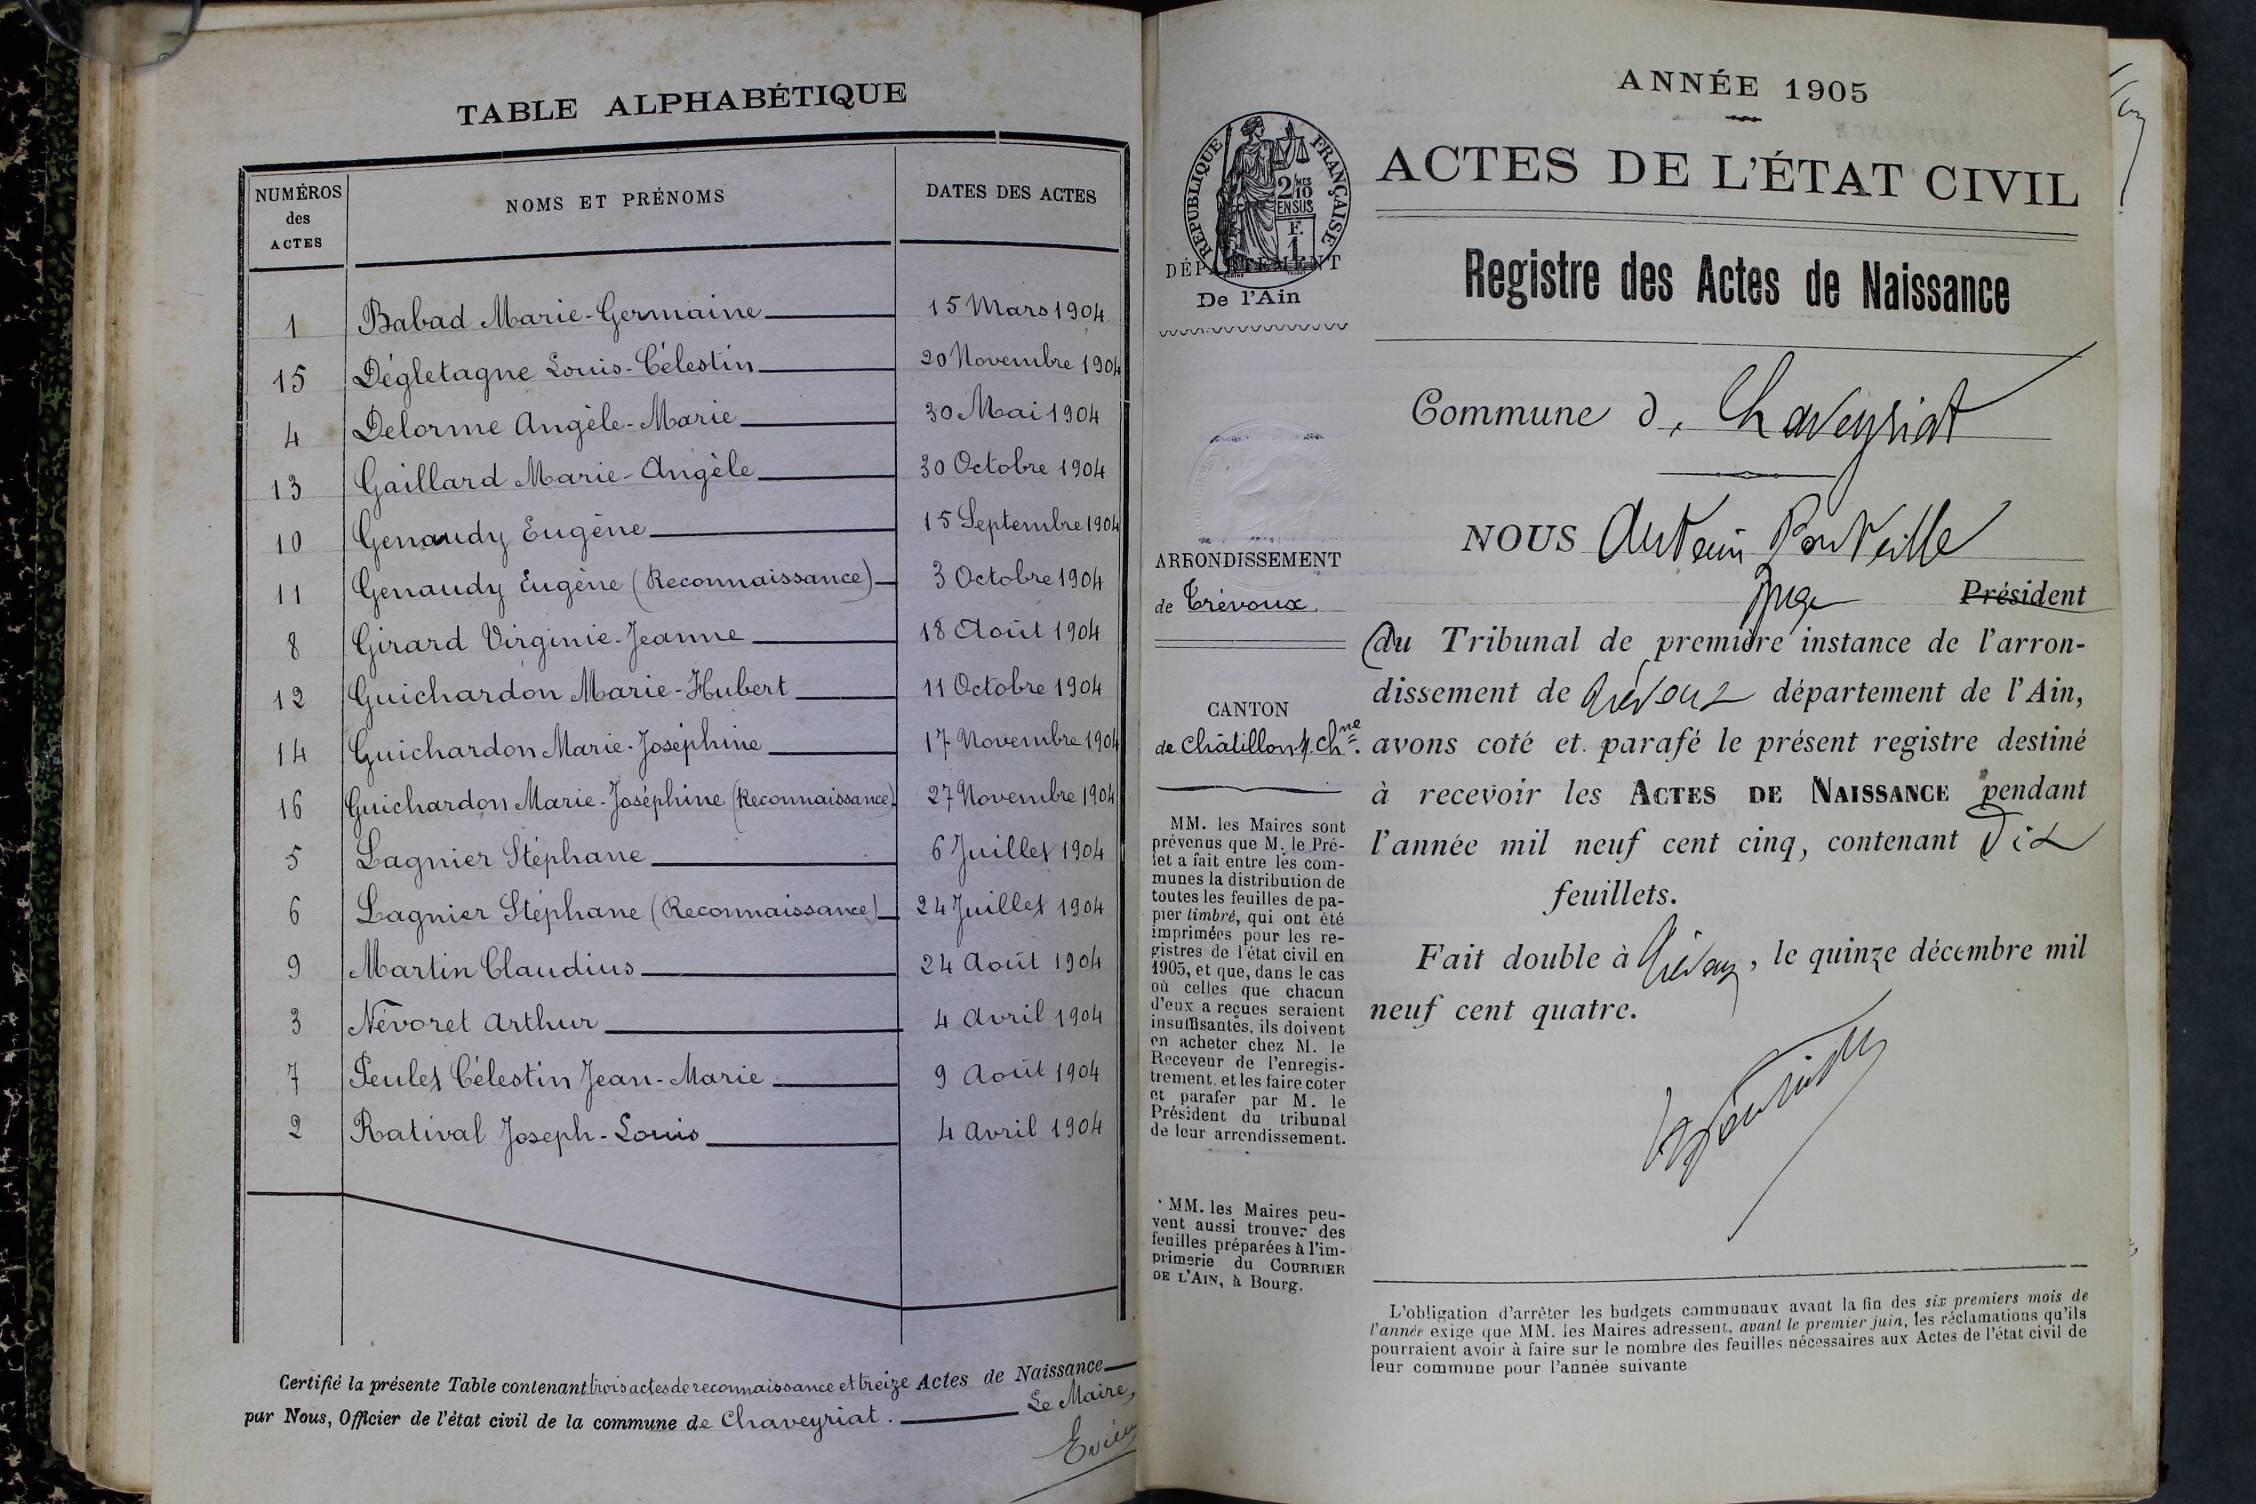 TABLE ALPHABÉTIQUE
NUMÉROS des ACTES
NOMS ET PRÉNOMS
DATES DES ACTES
1 Babad Marie-Germaine 15 Mars 1904
15 Dégletagne Louis-Célestin 20 Novembre 1904
4 Delorme Angèle-Marie 30 Mai 1904
13 Gaillard Marie-Angèle 30 Octobre 1904
10 Genaudy Eugène 15 Septembre 1904
11 Genaudy Eugène (Reconnaissance) 3 Octobre 1904
8 Girard Virginie-Jeanne 18 Août 1904
12 Guichardon Marie-Hubert 11 Octobre 1904
14 Guichardon Marie-Joséphine 17 Novembre 1904
16 Guichardon Marie-Joséphine (Reconnaissance) 27 Novembre 1904
5 Lagnier Stéphane 6 Juillet 1904
6 Lagnier Stéphane (Reconnaissance) 24 Juillet 1904
9 Martin Claudius 24 Août 1904
3 Névoret Arthur 4 Avril 1904
7 Peulet Célestin Jean-Marie 9 Août 1904
2 Ratival Joseph-Louis 4 Avril 1904
Certifié la présente Table contenant trois actes de reconnaissance et treize Actes de Naissance
par Nous, Officier de l'état civil de la commune de Chaveyriat.
Le Maire,
ANNÉE 1905
ACTES DE L'ÉTAT CIVIL
Registre des Actes de Naissance
RÉPUBLIQUE FRANÇAISE
2/10 MES
EN SUS
F.
1
DÉPARTEMENT
De l'Ain
ARRONDISSEMENT
de Trévoux
CANTON
de Châtillon s/ Chne.
MM. les Maires sont
prévenus que M. le Pré-
fet a fait entre les com-
munes la distribution de
toutes les feuilles de pa-
pier timbré, qui ont été
imprimées pour les re-
gistres de l'état civil en
1905, et que, dans le cas
où celles que chacun
d'eux a reçues seraient
insuffisantes, ils doivent
en acheter chez M. le
Receveur de l'enregis-
trement, et les faire coter
et parafer par M. le
Président du tribunal
de leur arrondissement.
MM. les Maires peu-
vent aussi trouver des
feuilles préparées à l'im-
primerie du COURRIER
DE L'AIN, à Bourg.
Commune d, Chaveyriat
NOUS
Juge Président
du Tribunal de première instance de l'arron-
dissement de Trévoux département de l'Ain,
avons coté et parafé le présent registre destiné
à recevoir les ACTES DE NAISSANCE pendant
l'année mil neuf cent cinq, contenant Dix
feuillets.
Fait double à Trévoux, le quinze décembre mil
neuf cent quatre.
L'obligation d'arrêter les budgets communaux avant la fin des six premiers mois de
l'année exige que MM. les Maires adressent, avant le premier juin, les réclamations qu'ils
pourraient avoir à faire sur le nombre des feuilles nécessaires aux Actes de l'état civil de
leur commune pour l'année suivante